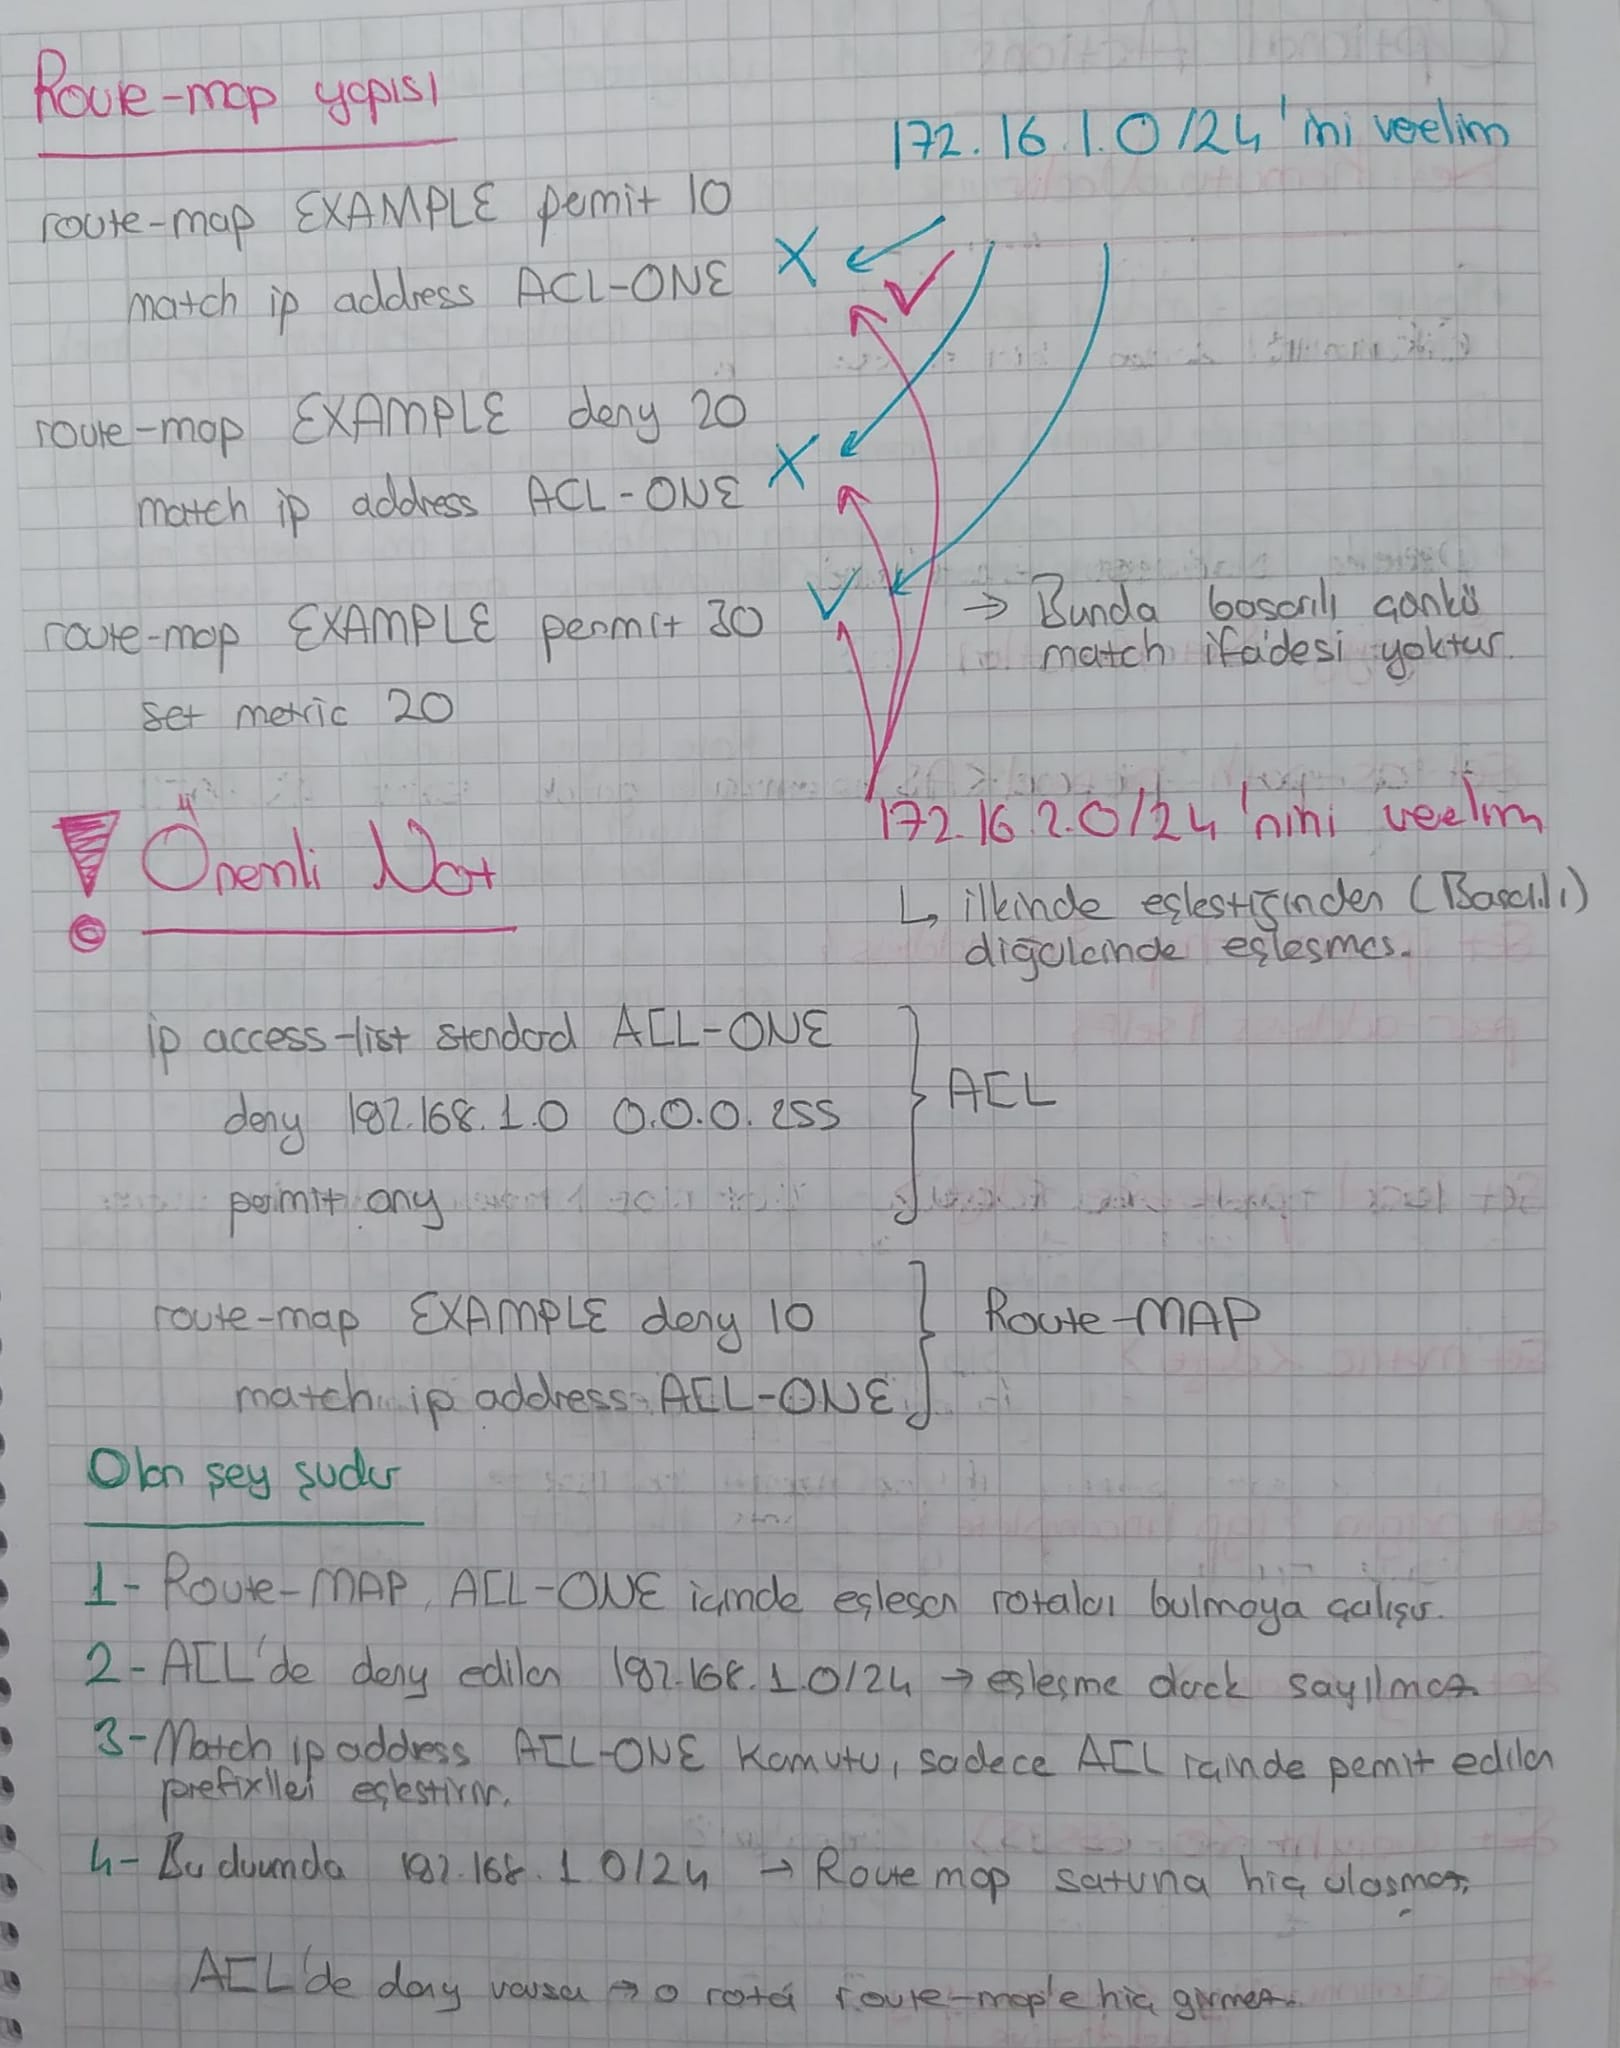 Route-map yapısı
172.16.1.0/24'ini verelim
route-map EXAMPLE permit 10
match ip address ACL-ONE
route-map EXAMPLE deny 20
match ip address ACL-ONE
route-map EXAMPLE permit 30
→ Bunda başarılı çünkü
match ifadesi yoktur.
set metric 20
172.16.2.0/24'nini verelim
Önemli Not
↳ ilkinde eşleştiğinden (Başarılı)
diğerlerinde eşleşmez.
ip access-list standard ACL-ONE
deny 192.168.1.0 0.0.0.255
ACL
permit any
route-map EXAMPLE deny 10
Route-MAP
match ip address ACL-ONE
Olan şey şudur
1- Route-MAP, ACL-ONE içinde eşleşen rotaları bulmaya çalışır.
2- ACL'de deny edilen 192.168.1.0/24 → eşleşme olarak sayılmaz.
3- Match ip address ACL-ONE Komutu, sadece ACL içinde permit edilen
prefixlleri eşleştirir.
4- Bu durumda 192.168.1.0/24 → Route map satırına hiç ulaşmaz.
ACL'de deny varsa → o rota route-map'e hiç girmez.